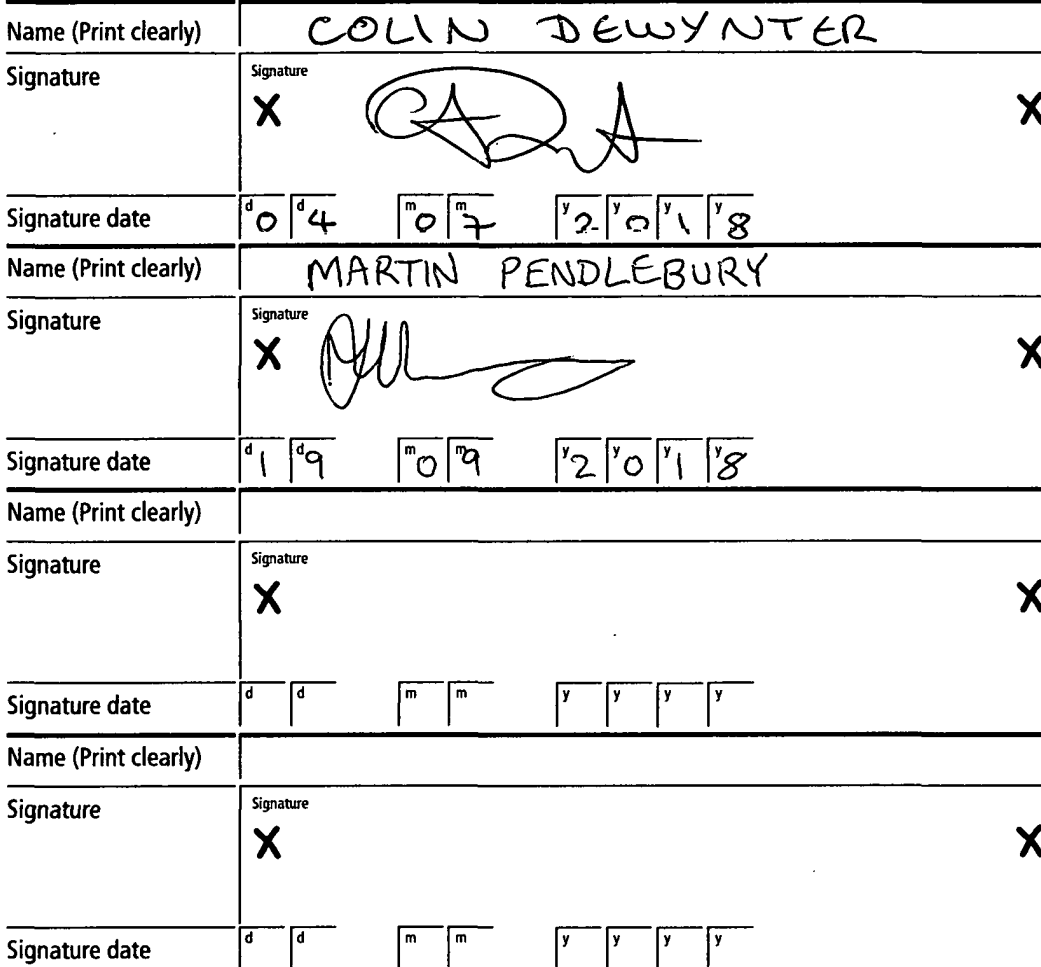 Name (Print clearly) COLIN DEWYNTER
Signature Signature
X X
Signature date d0 d4 m0 m7 y2 y0 y1 y8
Name (Print clearly) MARTIN PENDLEBURY
Signature Signature
X X
Signature date d1 d9 m0 m9 y2 y0 y1 y8
Name (Print clearly)
Signature Signature
X X
Signature date d d m m y y y y
Name (Print clearly)
Signature Signature
X X
Signature date d d m m y y y y